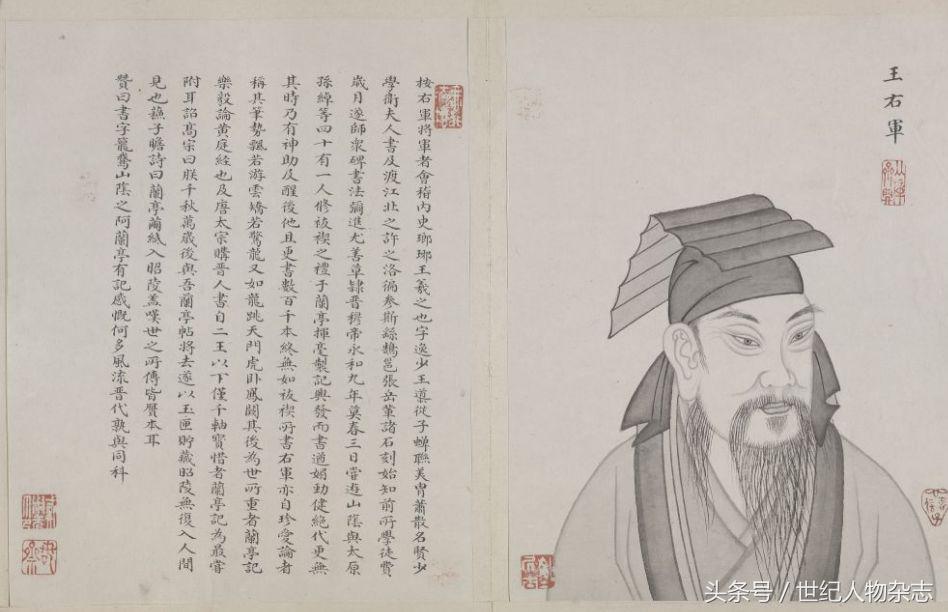 王右軍
按右軍將軍者會稽內史瑯琊王羲之也字逸少王導從子蟬聯美冑蕭散名賢少
學衛夫人書及渡江北之許之洛徧參斯繇鵠邕張岳輩諸石刻始知前所學徒費
歲月遂師衆碑書法彌進尤善草隸晉穆帝永和九年莫春三日嘗遊山陰與太原
孫綽等四十有一人修祓禊之禮于蘭亭揮毫製記興發而書遒媚勁健絕代更無
其時乃有神助及醒後他且更書數百千本終無如祓禊所書右軍亦自珍愛論者
稱其筆勢飄若游雲矯若驚龍又如龍跳天門虎臥鳳闕其後為世所重者蘭亭記
樂毅論黃庭經也及唐太宗購晉人書自二王以下僅千軸寶惜者蘭亭記為最嘗
附耳詔高宗曰朕千秋萬歲後與吾蘭亭帖將去遂以玉匣貯藏昭陵無復入人間
見也蘇子瞻詩曰蘭亭繭紙入昭陵蓋嘆世之所傳皆贋本耳
贊曰書字籠鵞山陰之阿蘭亭有記感慨何多風流晉代孰與同科
头条号／世纪人物杂志